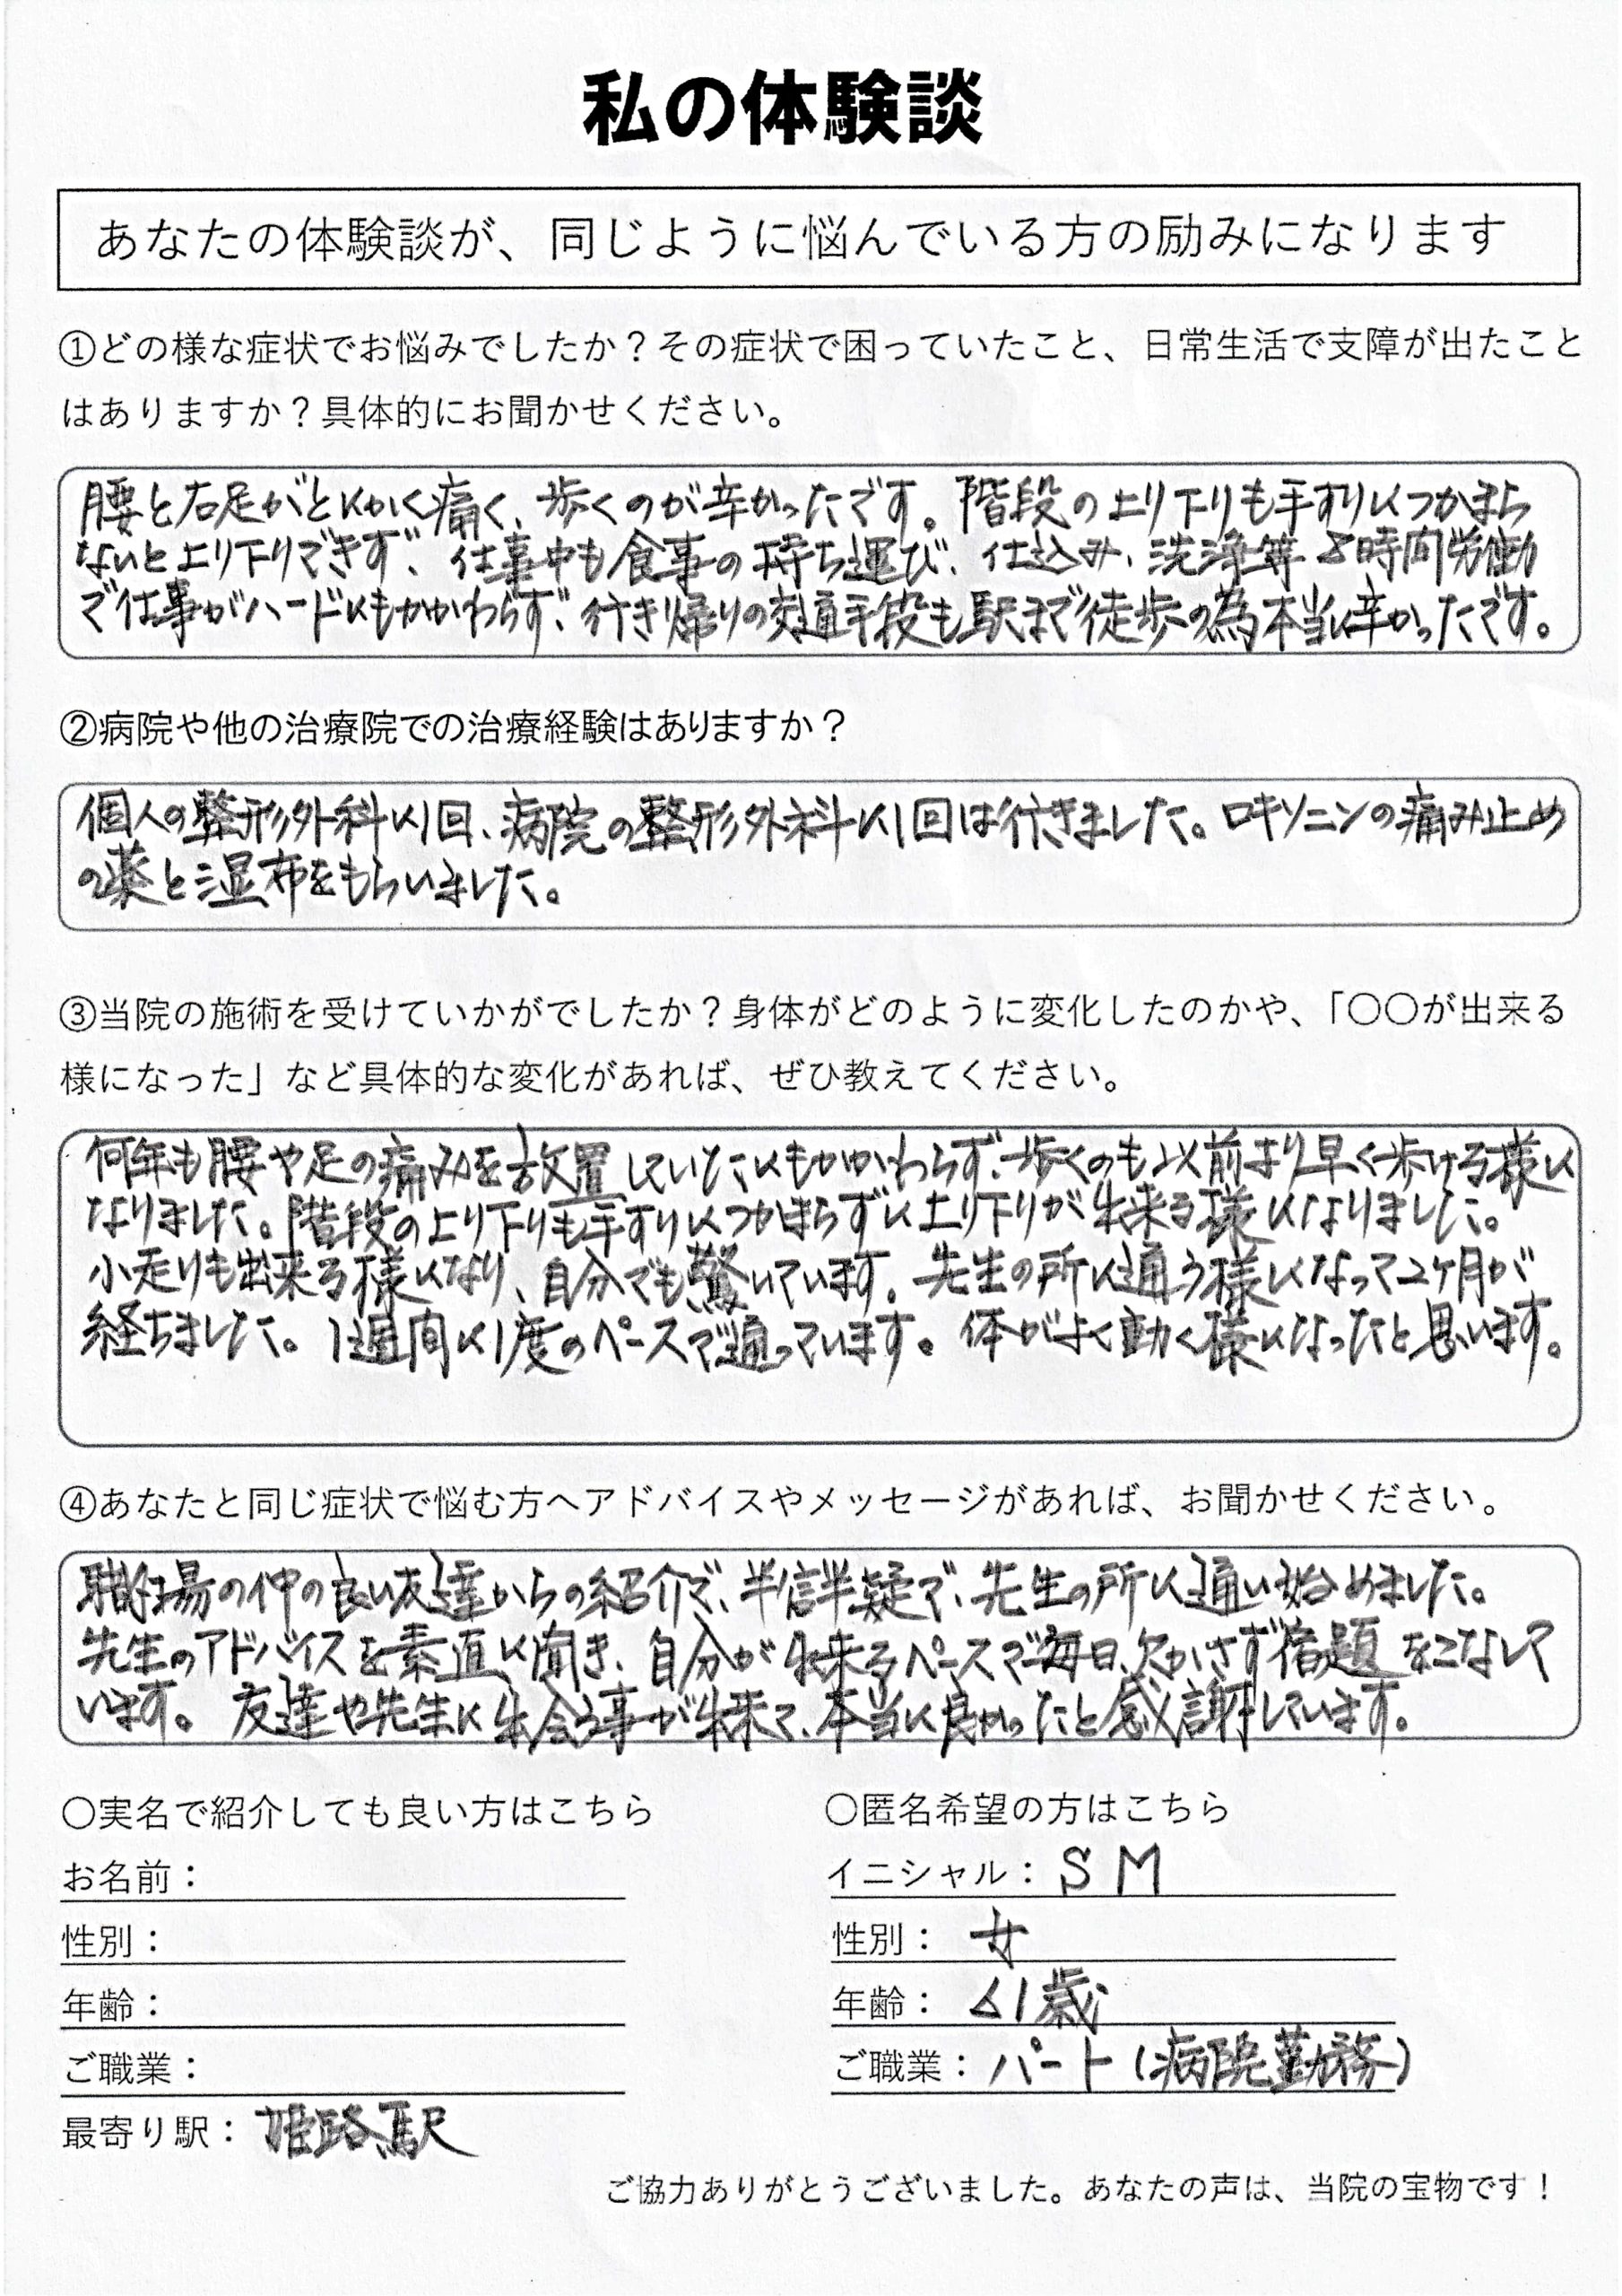 私の体験談
あなたの体験談が、同じように悩んでいる方の励みになります
①どの様な症状でお悩みでしたか？その症状で困っていたこと、日常生活で支障が出たこと
はありますか？具体的にお聞かせください。
腰と右足がとにかく痛く、歩くのが辛かったです。階段の上り下りも手すりにつかまら
ないと上り下りできず、仕事中も食事の持ち運び、仕込み、洗浄等8時間労働
で仕事がハードにもかかわらず、行き帰りの交通手段も駅まで徒歩の為本当に辛かったです。
②病院や他の治療院での治療経験はありますか？
個人の整形外科に1回、病院の整形外科に1回は行きました。ロキソニンの痛み止め
の薬と湿布をもらいました。
③当院の施術を受けていかがでしたか？身体がどのように変化したのかや、「〇〇が出来る
様になった」など具体的な変化があれば、ぜひ教えてください。
何年も腰や足の痛みを放置していたにもかかわらず、歩くのも以前より早く歩ける様に
なりました。階段の上り下りも手すりにつかまらずに上り下りが出来る様になりました。
小走りも出来る様になり、自分でも驚いています。先生の所に通う様になって2ヶ月が
経ちました。1週間に1度のペースで通っています。体がよく動く様になったと思います。
④あなたと同じ症状で悩む方へアドバイスやメッセージがあれば、お聞かせください。
職場の仲の良い友達からの紹介で、半信半疑で、先生の所に通い始めました。
先生のアドバイスを素直に聞き、自分が出来るペースで毎日欠かさず宿題をこなして
います。友達や先生に出会う事が出来て、本当に良かったと感謝しています。
〇実名で紹介しても良い方はこちら
〇匿名希望の方はこちら
お名前：
イニシャル：S M
性別：
性別：女
年齢：
年齢：61歳
ご職業：
ご職業：パート（病院勤務）
最寄り駅：姫路駅
ご協力ありがとうございました。あなたの声は、当院の宝物です！